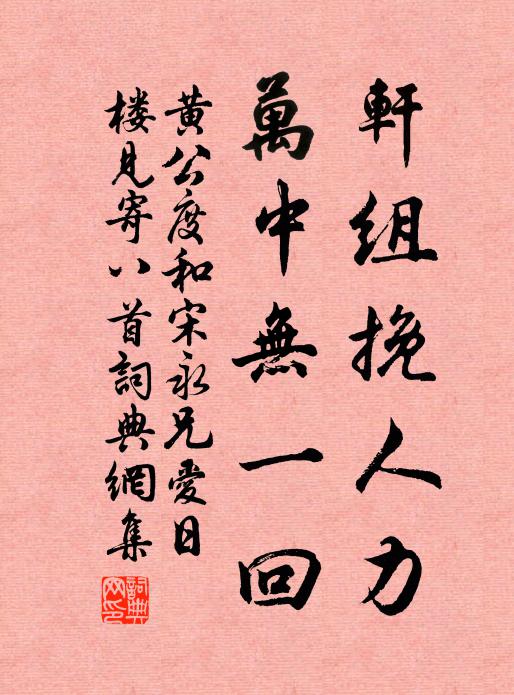 軒組挽人力
萬中無一回
黃公度和宋永兄愛日
楼見寄八首詞典網集
詞典网印